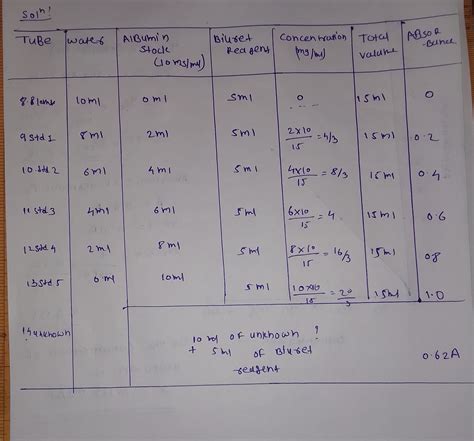 Solⁿ!
Tube | water | Albumin Stock (10mg/ml) | Biuret Reagent | Concentration (mg/ml) | Total volume | Absorbance
8 Blank | 10ml | 0ml | 5ml | 0 | 15ml | 0
9 Std 1 | 8ml | 2ml | 5ml | 2×10/15 = 4/3 | 15ml | 0.2
10 Std 2 | 6ml | 4ml | 5ml | 4×10/15 = 8/3 | 15ml | 0.4
11 Std 3 | 4ml | 6ml | 5ml | 6×10/15 = 4 | 15ml | 0.6
12 Std 4 | 2ml | 8ml | 5ml | 8×10/15 = 16/3 | 15ml | 0.8
13 Std 5 | 0 ml | 10ml | 5ml | 10×10/15 = 20/3 | 15ml | 1.0
14 unknown | 10 ml of unknown
+ 5ml of Biuret
reagent | 0.62A